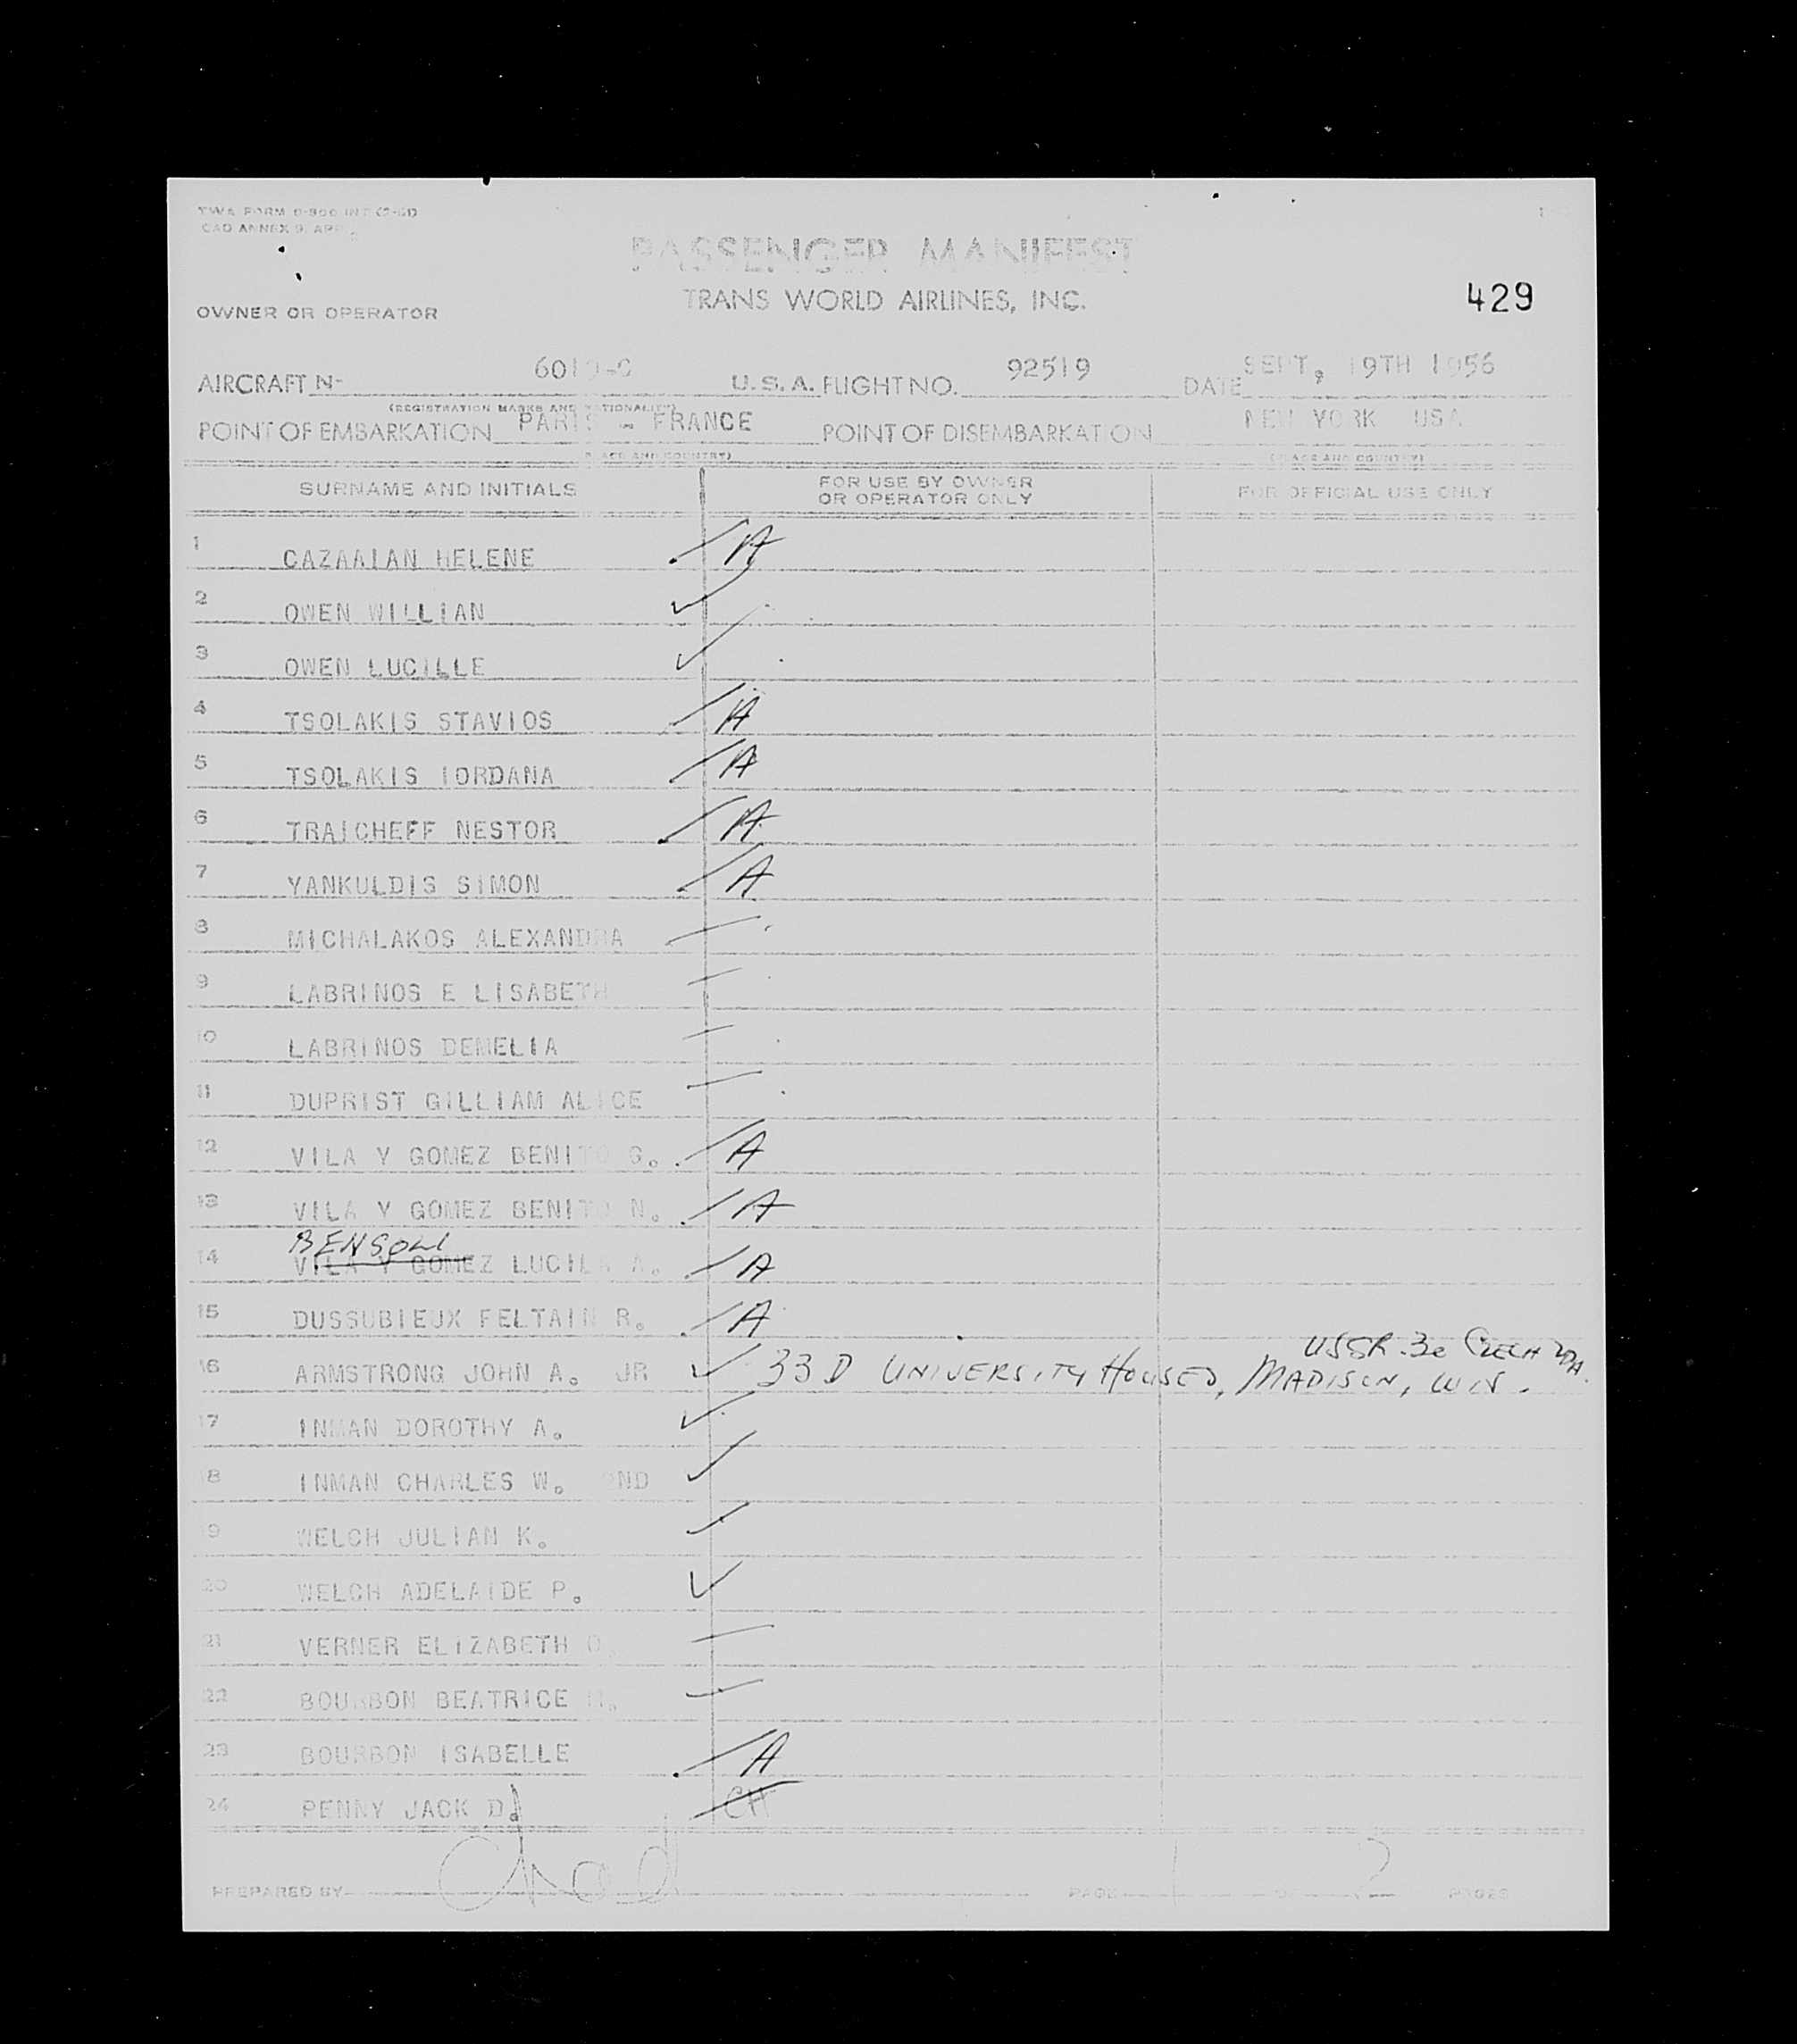 TWA FORM
CAO ANNEX 9, APP
PASSENGER MANIFEST
TRANS WORLD AIRLINES, INC.
429
OWNER OR OPERATOR
AIRCRAFT N- 6019-C U.S.A. FLIGHT NO. 92519 DATE SEPT, 19TH 1956
(REGISTRATION MARKS AND NATIONALITY)
POINT OF EMBARKATION PARIS - FRANCE POINT OF DISEMBARKATION NEW YORK USA
(PLACE AND COUNTRY) (PLACE AND COUNTRY)
SURNAME AND INITIALS FOR USE BY OWNER OR OPERATOR ONLY FOR OFFICIAL USE ONLY
1 CAZAAIAN HELENE A
2 OWEN WILLIAN
3 OWEN LUCILLE
4 TSOLAKIS STAVIOS A
5 TSOLAKIS IORDANA A
6 TRAICHEFF NESTOR A
7 YANKULDIS SIMON A
8 MICHALAKOS ALEXANDRA
9 LABRINOS E LISABETH
10 LABRINOS DEMELIA
11 DUPRIST GILLIAM ALICE
12 VILA Y GOMEZ BENITO G. A
13 VILA Y GOMEZ BENITO N. A
14 VILA Y GOMEZ LUCILA A. A
15 DUSSUBIEUX FELTAIN R. A
USSR. 3e CZECH
16 ARMSTRONG JOHN A. JR 33 D UNIVERSITY HOUSES, MADISON, WIS.
17 INMAN DOROTHY A.
18 INMAN CHARLES W. 2ND
19 WELCH JULIAN K.
20 WELCH ADELAIDE P.
21 VERNER ELIZABETH O.
22 BOURBON BEATRICE
23 BOURBON ISABELLE A
24 PENNY JACK D. CA
PREPARED BY PAGE 1 OF 2 PAGES